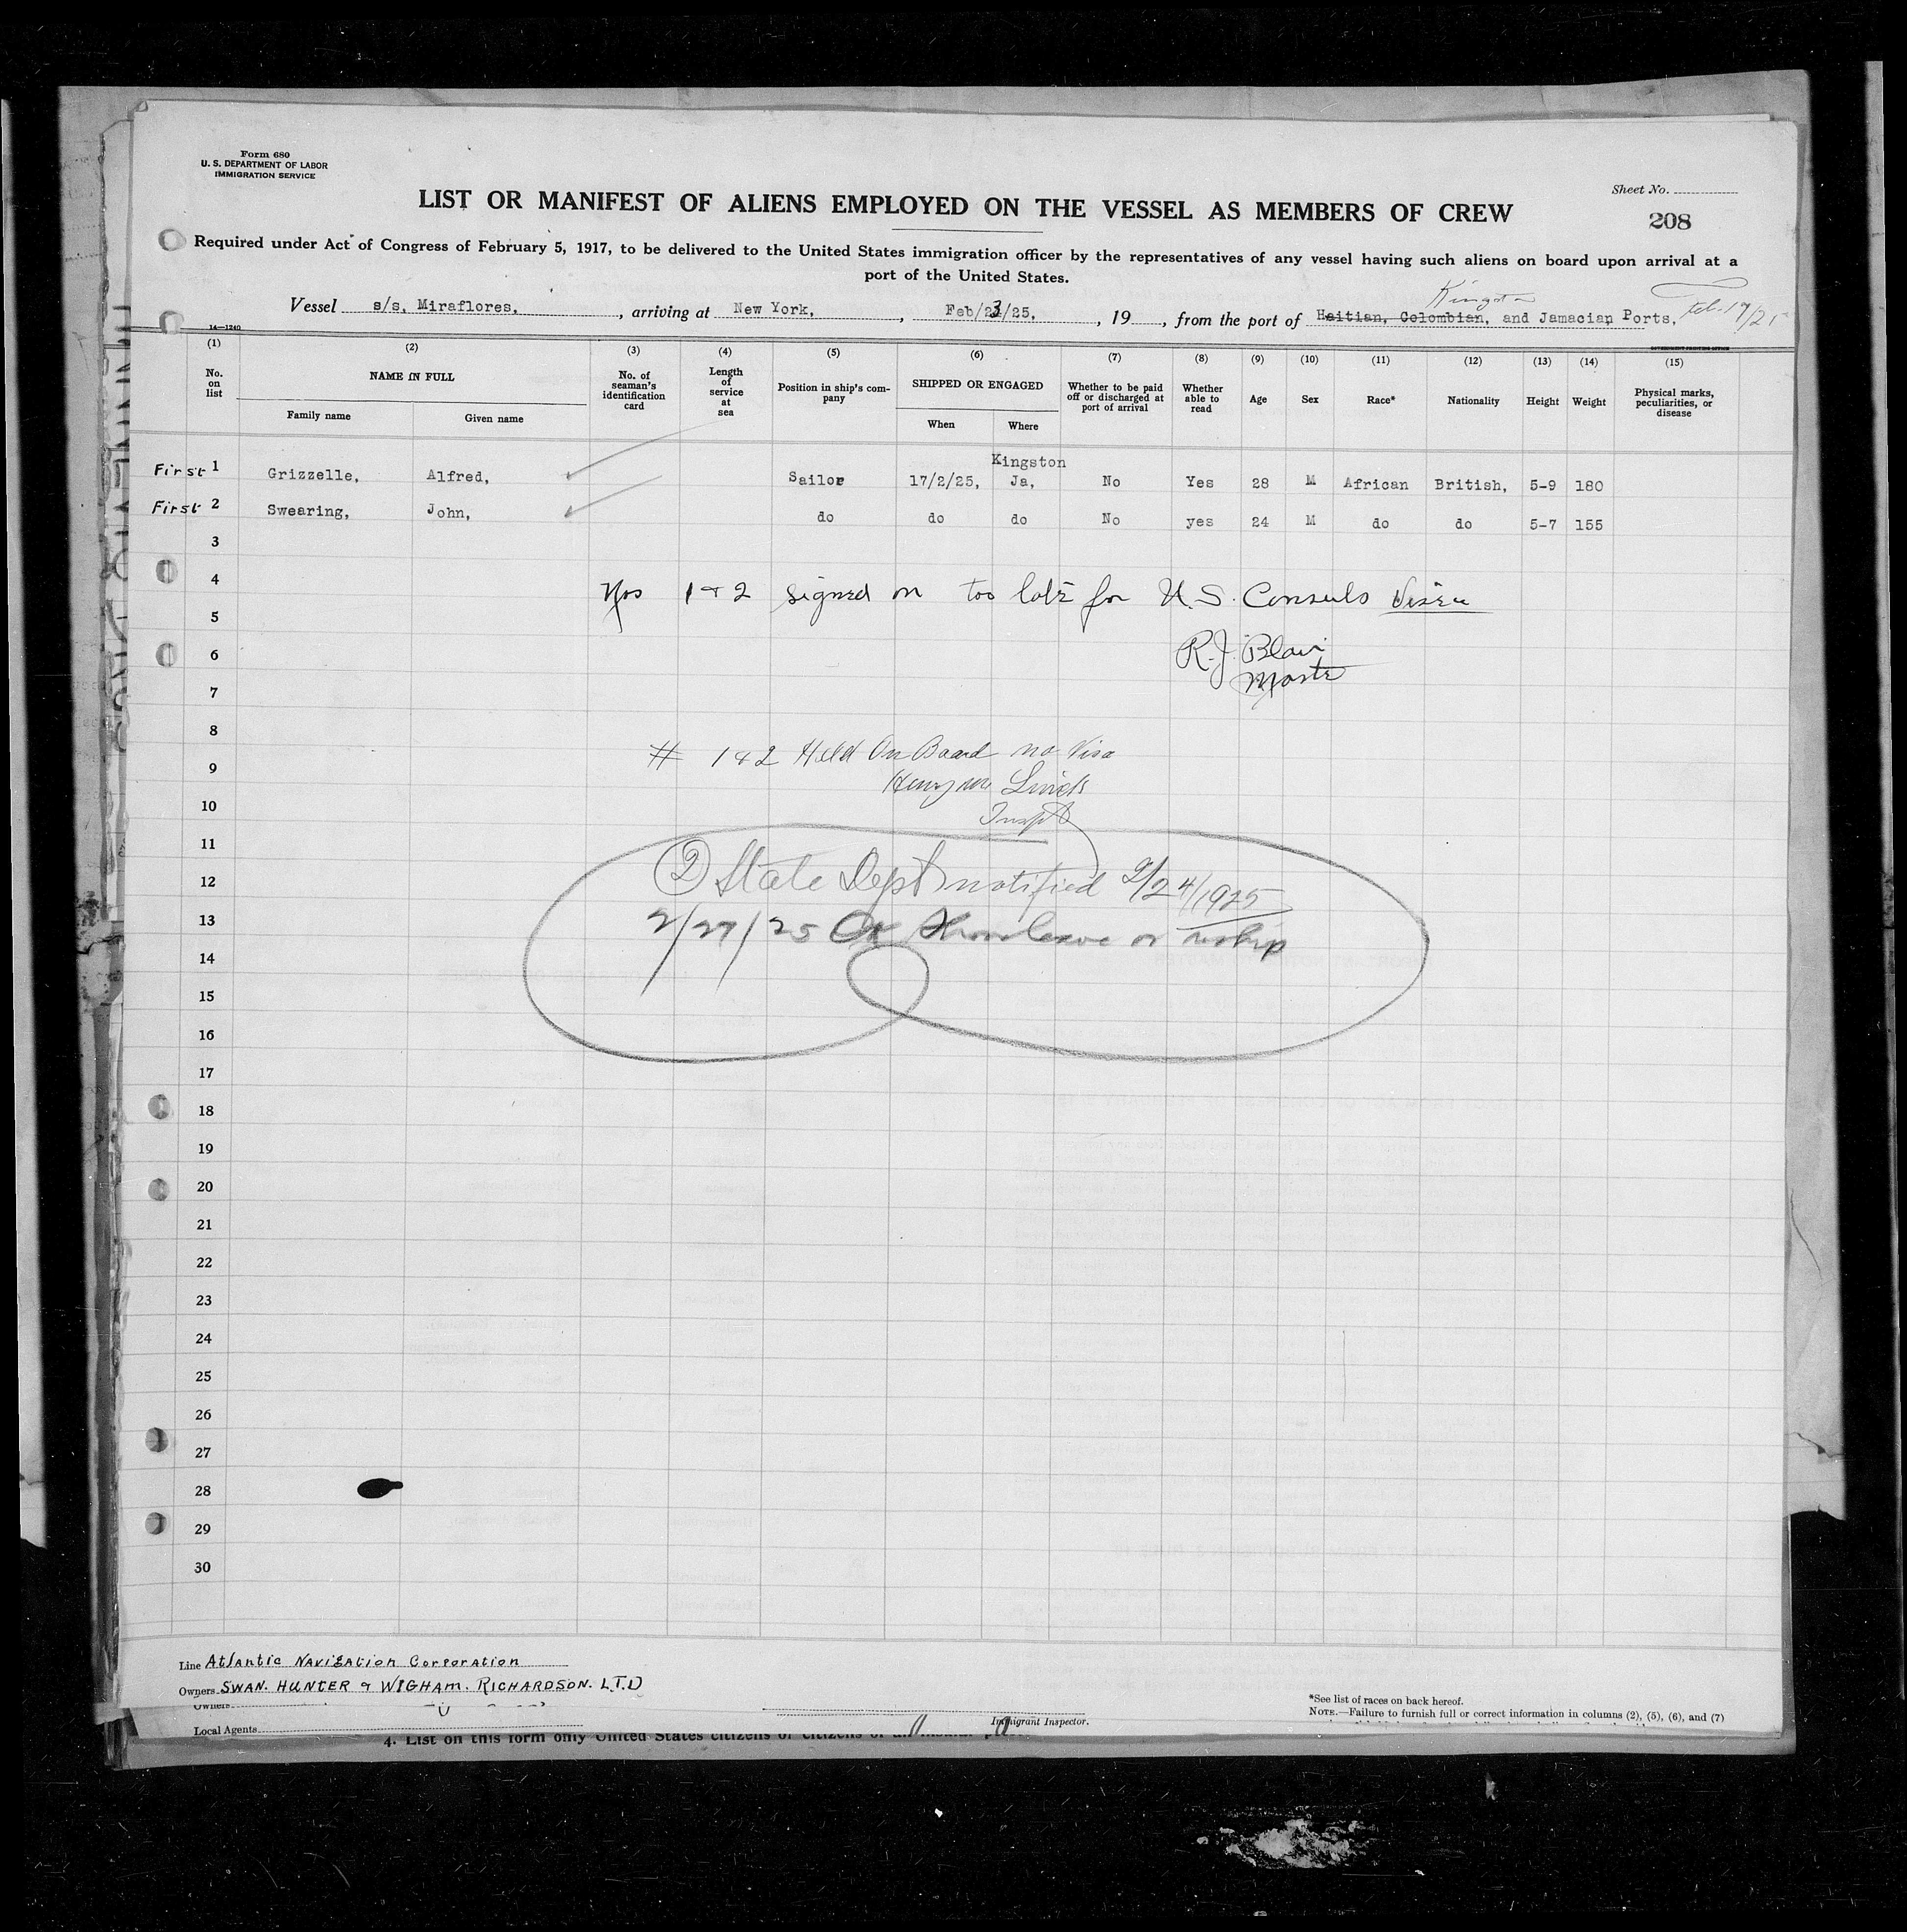 Form 680
U. S. DEPARTMENT OF LABOR
IMMIGRATION SERVICE
Sheet No.
208
LIST OR MANIFEST OF ALIENS EMPLOYED ON THE VESSEL AS MEMBERS OF CREW
Required under Act of Congress of February 5, 1917, to be delivered to the United States immigration officer by the representatives of any vessel having such aliens on board upon arrival at a
port of the United States.
Kingston
Vessel s/s. Miraflores, , arriving at New York, , Feb/23/25, , 19 , from the port of Haitian, Colombian, and Jamacian Ports, Feb. 17/25
14—1240
(1) (2) (3) (4) (5) (6) (7) (8) (9) (10) (11) (12) (13) (14) (15)
No. on list NAME IN FULL No. of seaman's identification card Length of service at sea Position in ship's company SHIPPED OR ENGAGED Whether to be paid off or discharged at port of arrival Whether able to read Age Sex Race* Nationality Height Weight Physical marks, peculiarities, or disease
Family name Given name When Where
Kingston
First 1 Grizzelle, Alfred, Sailor 17/2/25, Ja, No Yes 28 M African British, 5-9 180
First 2 Swearing, John, do do do No yes 24 M do do 5-7 155
3
4 Nos 1 & 2 signed on too late for U. S. Consuls
5
6 R. J. Blair
7 Master
8
9 # 1 & 2 Held On Board no Visa
10 Inspt
11
12 (2) State Dept notified 2/24/1925
13 2/27/25 OK
14
15
16
17
18
19
20
21
22
23
24
25
26
27
28
29
30
Line Atlantic Navigation Corporation
Owners SWAN. HUNTER & WIGHAM. RICHARDSON. LTD
Owners
Local Agents
Immigrant Inspector.
*See list of races on back hereof.
NOTE.—Failure to furnish full or correct information in columns (2), (5), (6), and (7)
4. List on this form only United States citizens or citizens of